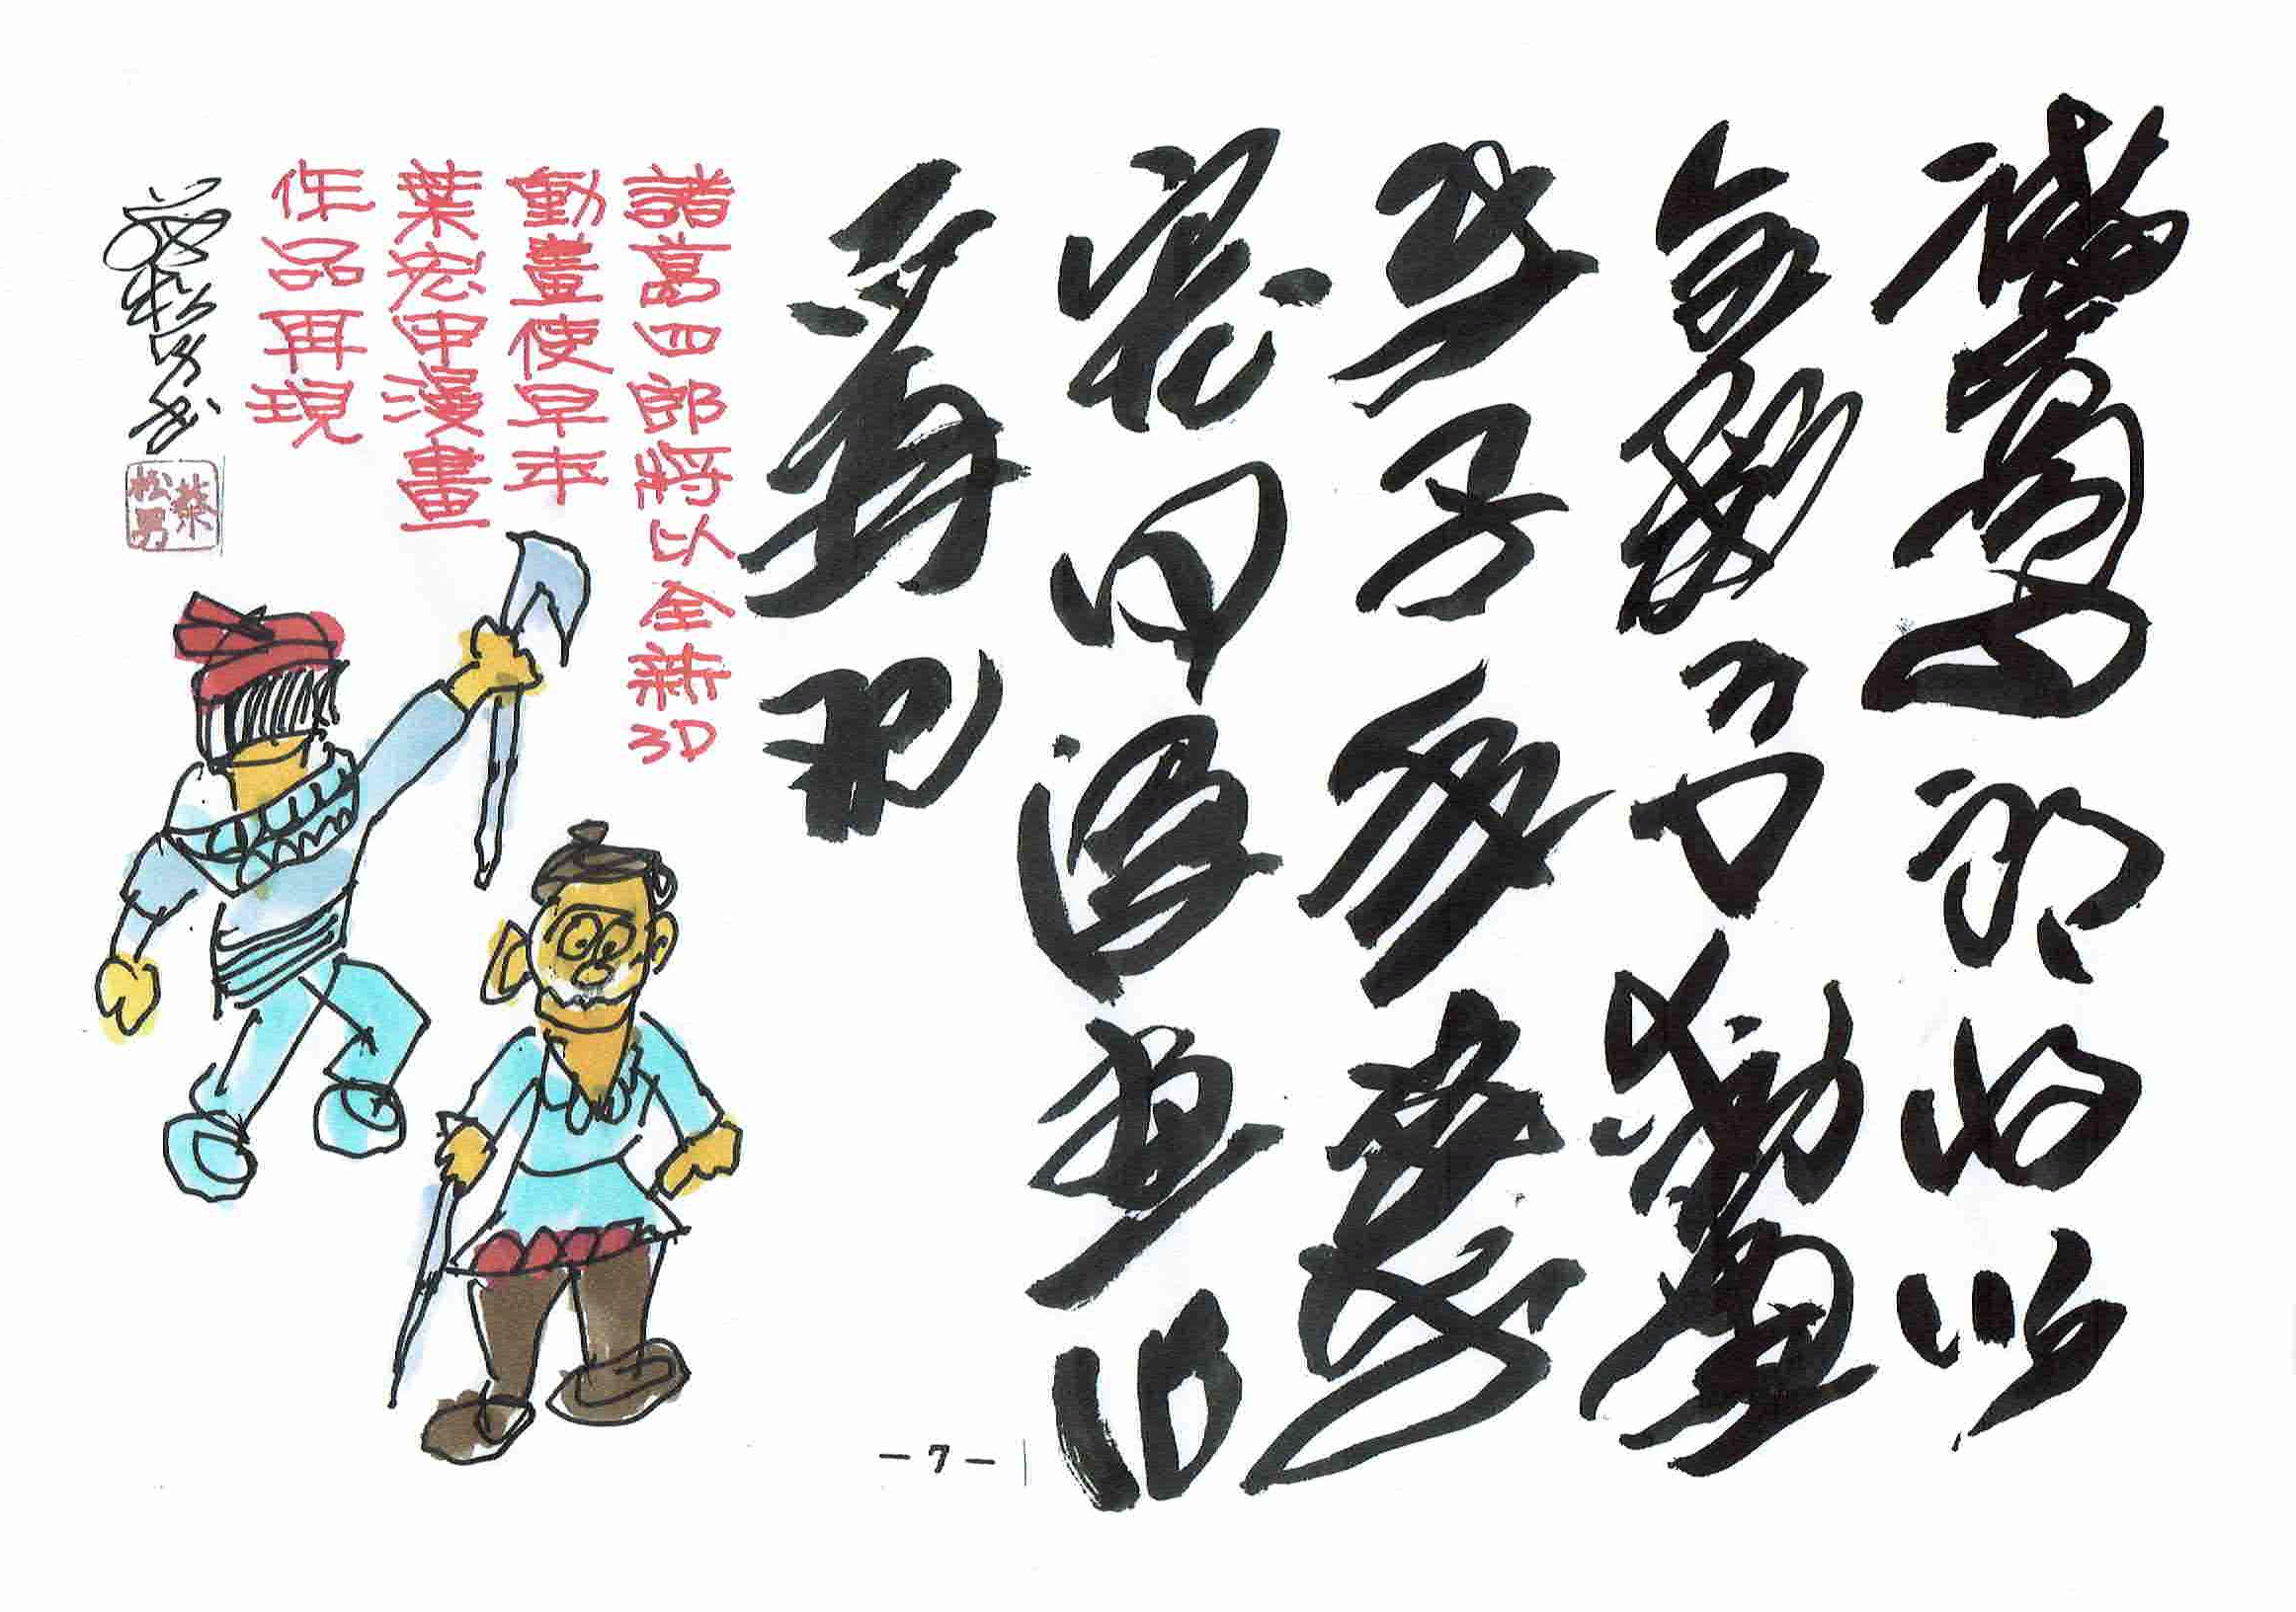 諸葛四郎將以
全新3D動畫
使早年葉
宏甲漫畫作
品再現
諸葛四郎將以全新3D
動畫使早年
葉宏甲漫畫
作品再現
蔡松男書
蔡松男
— 7 —